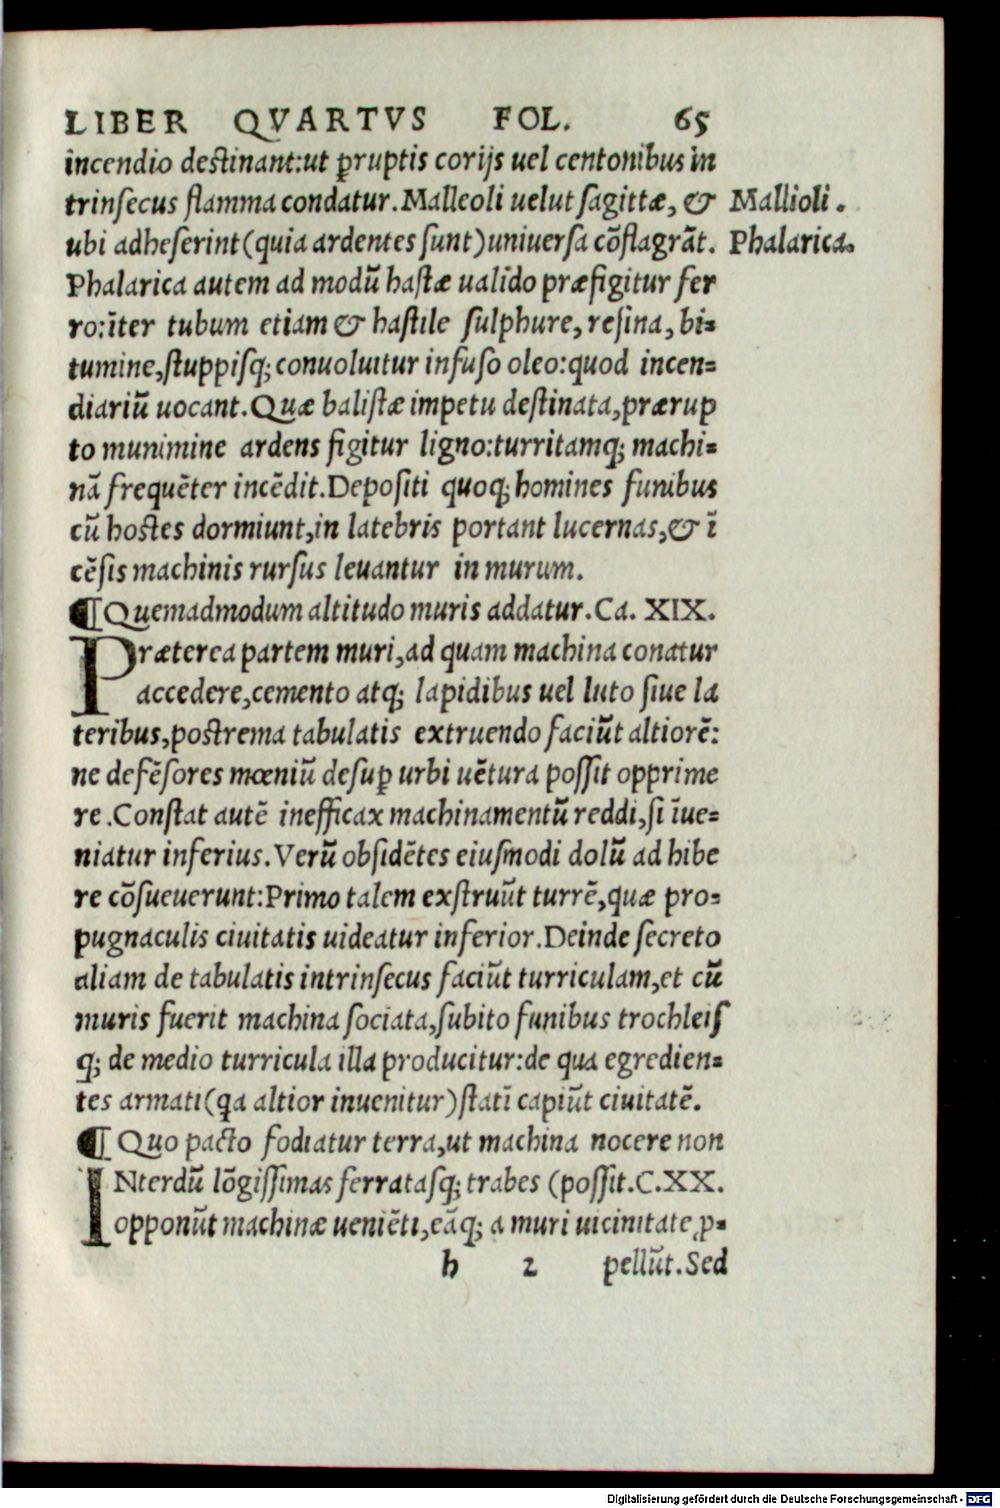 LIBER QVARTVS FOL. 65
incendio destinant:ut ꝑruptis corijs uel centonibus in
trinsecus flamma condatur.Malleoli uelut sagittæ, & Mallioli.
ubi adheserint(quia ardentes sunt)uniuersa cõflagrãt. Phalarica.
Phalarica autem ad modũ hastæ ualido præfigitur fer
ro:ĩter tubum etiam & hastile sulphure, resina, bi=
tumine,stuppisq; conuoluitur infuso oleo:quod incen=
diariũ uocant.Quæ balistæ impetu destinata,prærup
to munimine ardens figitur ligno:turritamq; machi=
nã frequẽter incẽdit.Depositi quoq; homines funibus
cũ hostes dormiunt,in latebris portant lucernas,& ĩ
cẽsis machinis rursus leuantur in murum.
¶Quemadmodum altitudo muris addatur.Ca. XIX.
Præterea partem muri,ad quam machina conatur
accedere,cemento atq; lapidibus uel luto siue la
teribus,postrema tabulatis extruendo faciũt altiorẽ:
ne defẽsores mœniũ desuꝑ urbi uẽtura possit opprime
re.Constat autẽ inefficax machinamentũ reddi,si ĩue=
niatur inferius.Verũ obsidẽtes eiusmodi dolũ adhibe
re cõsueuerunt:Primo talem exstruũt turrẽ,quæ pro=
pugnaculis ciuitatis uideatur inferior.Deinde secreto
aliam de tabulatis intrinsecus faciũt turriculam,et cũ
muris fuerit machina sociata,subito funibus trochleis
q; de medio turricula illa producitur:de qua egredien=
tes armati(qa altior inuenitur)statĩ capiũt ciuitatẽ.
¶ Quo pacto fodiatur terra,ut machina nocere non
INterdũ lõgissimas ferratasq; trabes (possit.C.XX.
opponũt machinæ ueniẽti,eãq; a muri uicinitate ꝓ=
h 2 pellũt.Sed
Digitalisierung gefördert durch die Deutsche Forschungsgemeinschaft - DFG